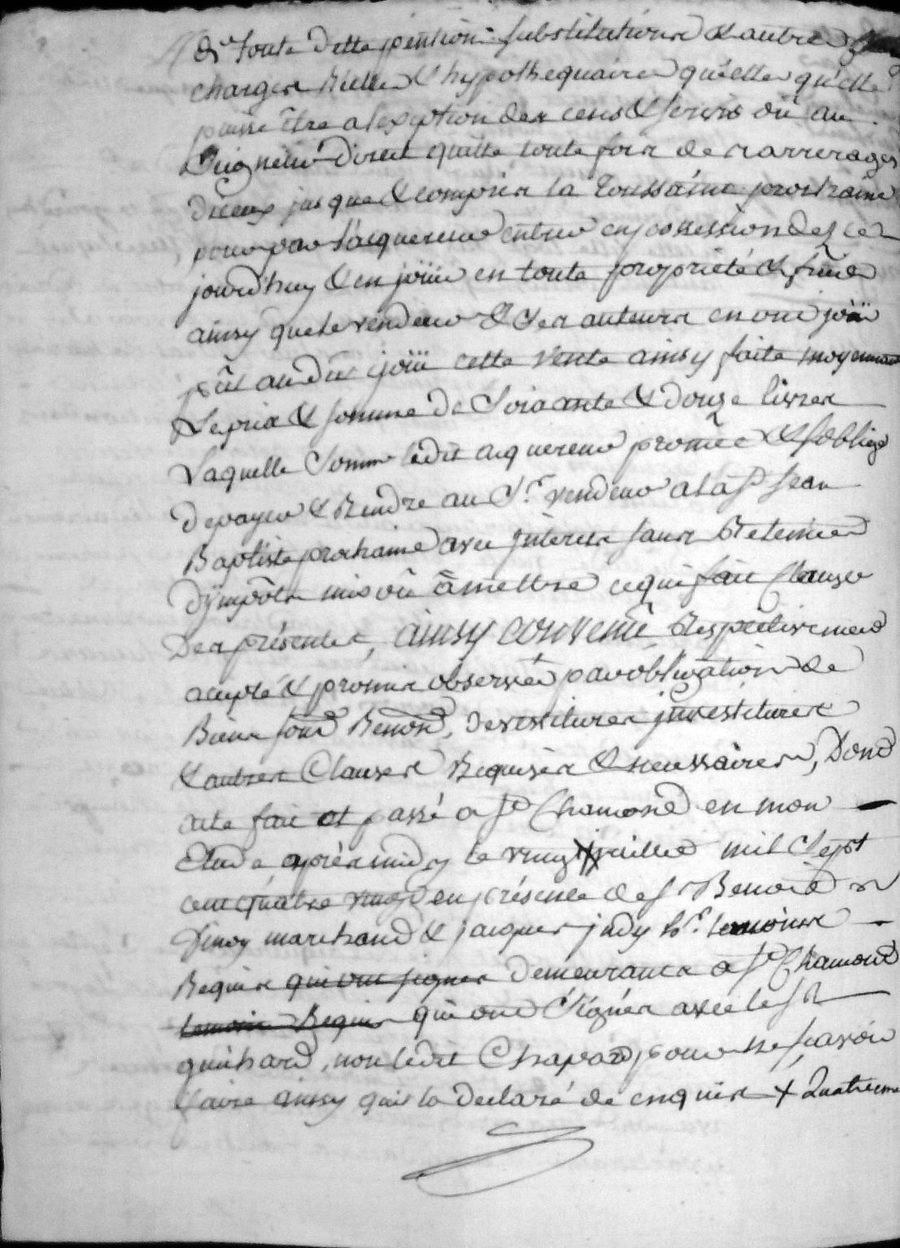 de toute dette pention substitution & autre
charges Rielles & hypothequaires qu'elle qu'elle
puisse être a l'exeption des cens & servis dû au
Seigneur direct quitte toute fois de s arrerages
d'iceux jusque & compris la Toussaint prochaine
pour par l'acquereur entrer en possession dès ce
jourdhuy & en joüir en toute proprieté & fruits
ainsy que le vendeur & ses auteurs en ont joüi
pû au dû joüir cette vente ainsy faite moyennant
Le prix & somme de Soixante & douze livres
Laquelle Somme ledit aquereur promêt & s'oblige
de payer & Rendre au Sr vendeur a la St Jean
Baptiste prochaine avec jnterets sans Retenüe
d'jmpôts mis où à mettre ce qui fait Clause
Des présentes, ainsy convenu Respectivement
acepté & promis observer par obligation de
Biens soumd Renond, devestitures jnvestitures
& autres Clauses Requises & necessaires, Dont
acte fait et passé a St Chamond en mon
Etude après midy le vingt juillet mil Sept
cent quatre vingt en présence de sr Benoit
marchand & jacques
demeurants a St Chamond
qui ont Signés avec le sr
guichard, non ledit Chapard pour ne sçavoir
faire ainsy qu'il a declaré de enquis + quatrieme